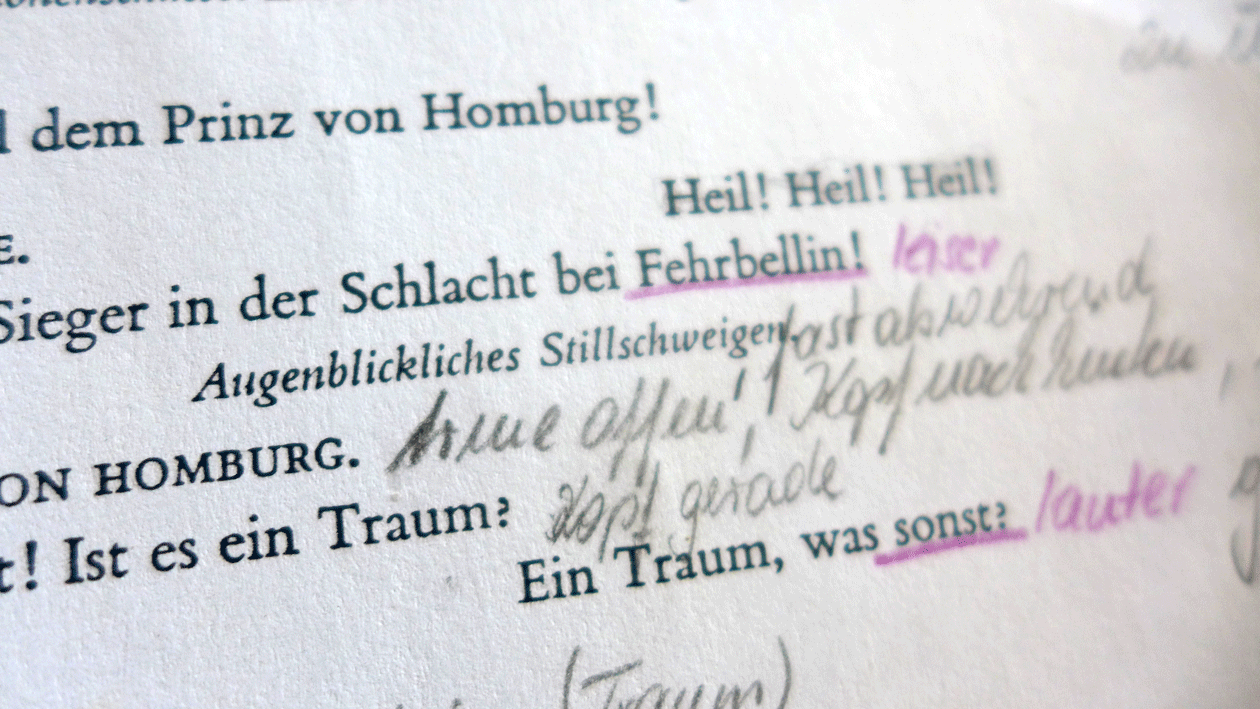 dem Prinz von Homburg!
Heil! Heil! Heil!
E.
Sieger in der Schlacht bei Fehrbellin! leiser
Augenblickliches Stillschweigen. fast abwehrend
Arme offen! Kopf nach hinten
ON HOMBURG.
Kopf gerade
t! Ist es ein Traum?
Ein Traum, was sonst? lauter
(Traum)